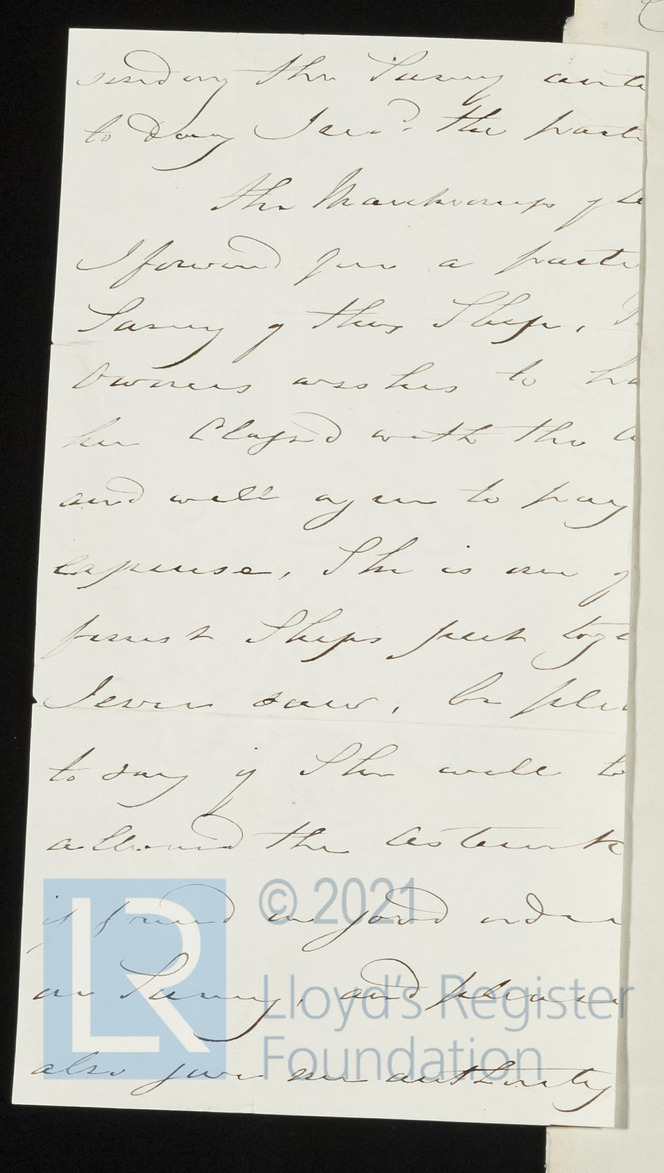 sending the Survey
to day I send the
The
I forward you a
Survey of this Ship,
Owners wishes to
her Classed with the
and will agree to pay
expense, She is one of
finest Ships put
I ever saw, be
to say if She will
allowed the Asterisk
if found in good order
on Survey, and please
also give me authority
© 2021
LR
Lloyd's Register
Foundation